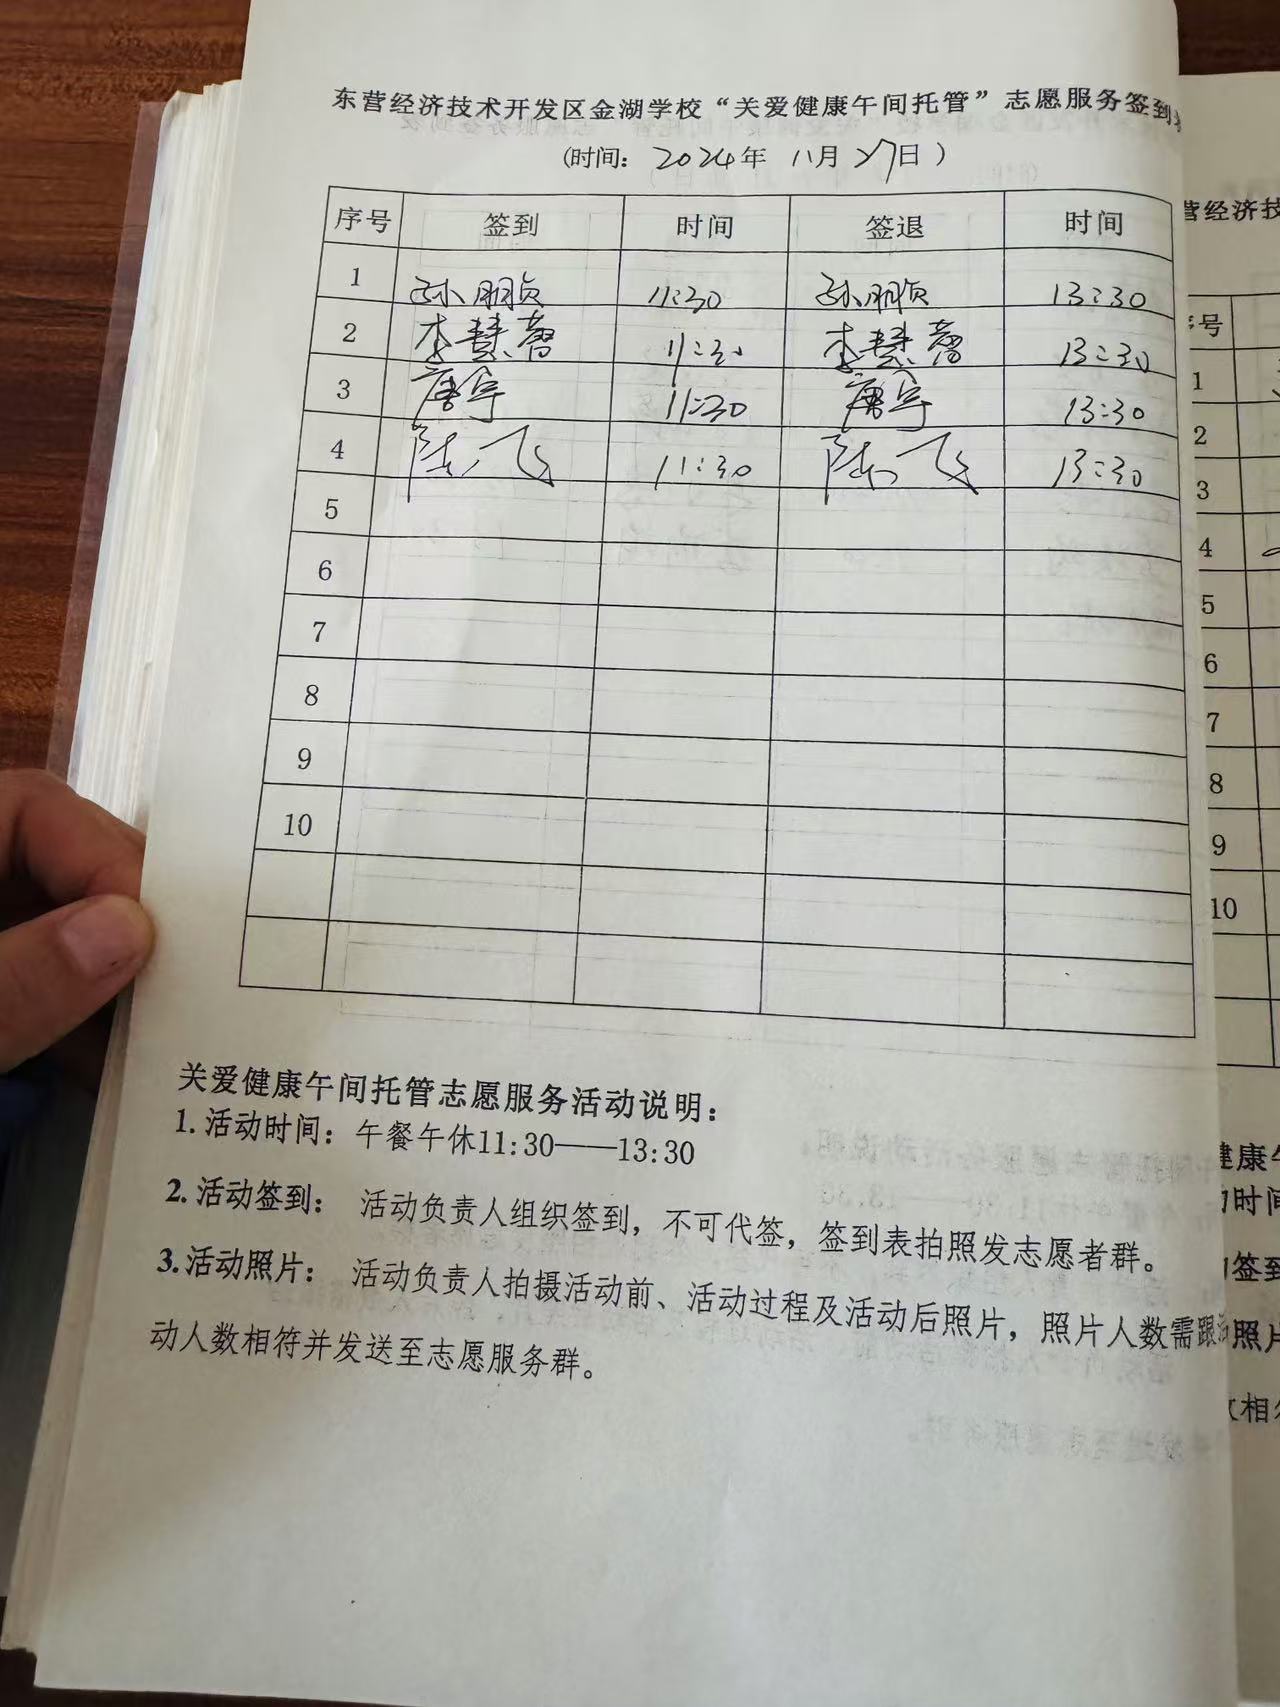 东营经济技术开发区金湖学校“关爱健康午间托管”志愿服务签到
(时间: 2024年 11月 27日 )
序号 签到 时间 签退 时间
1 孙朋贞 11:30 孙朋贞 13:30
2 李慧 11:30 李慧 13:30
3 唐宇 11:30 唐宇 13:30
4 陆飞 11:30 陆飞 13:30
5
6
7
8
9
10
关爱健康午间托管志愿服务活动说明:
1. 活动时间: 午餐午休11:30——13:30
2. 活动签到: 活动负责人组织签到, 不可代签, 签到表拍照发志愿者群。
3. 活动照片: 活动负责人拍摄活动前、活动过程及活动后照片, 照片人数需跟
动人数相符并发送至志愿服务群。
营经济技
号
1
2
3
4
5
6
7
8
9
10
健康
时间
签到
照片
相